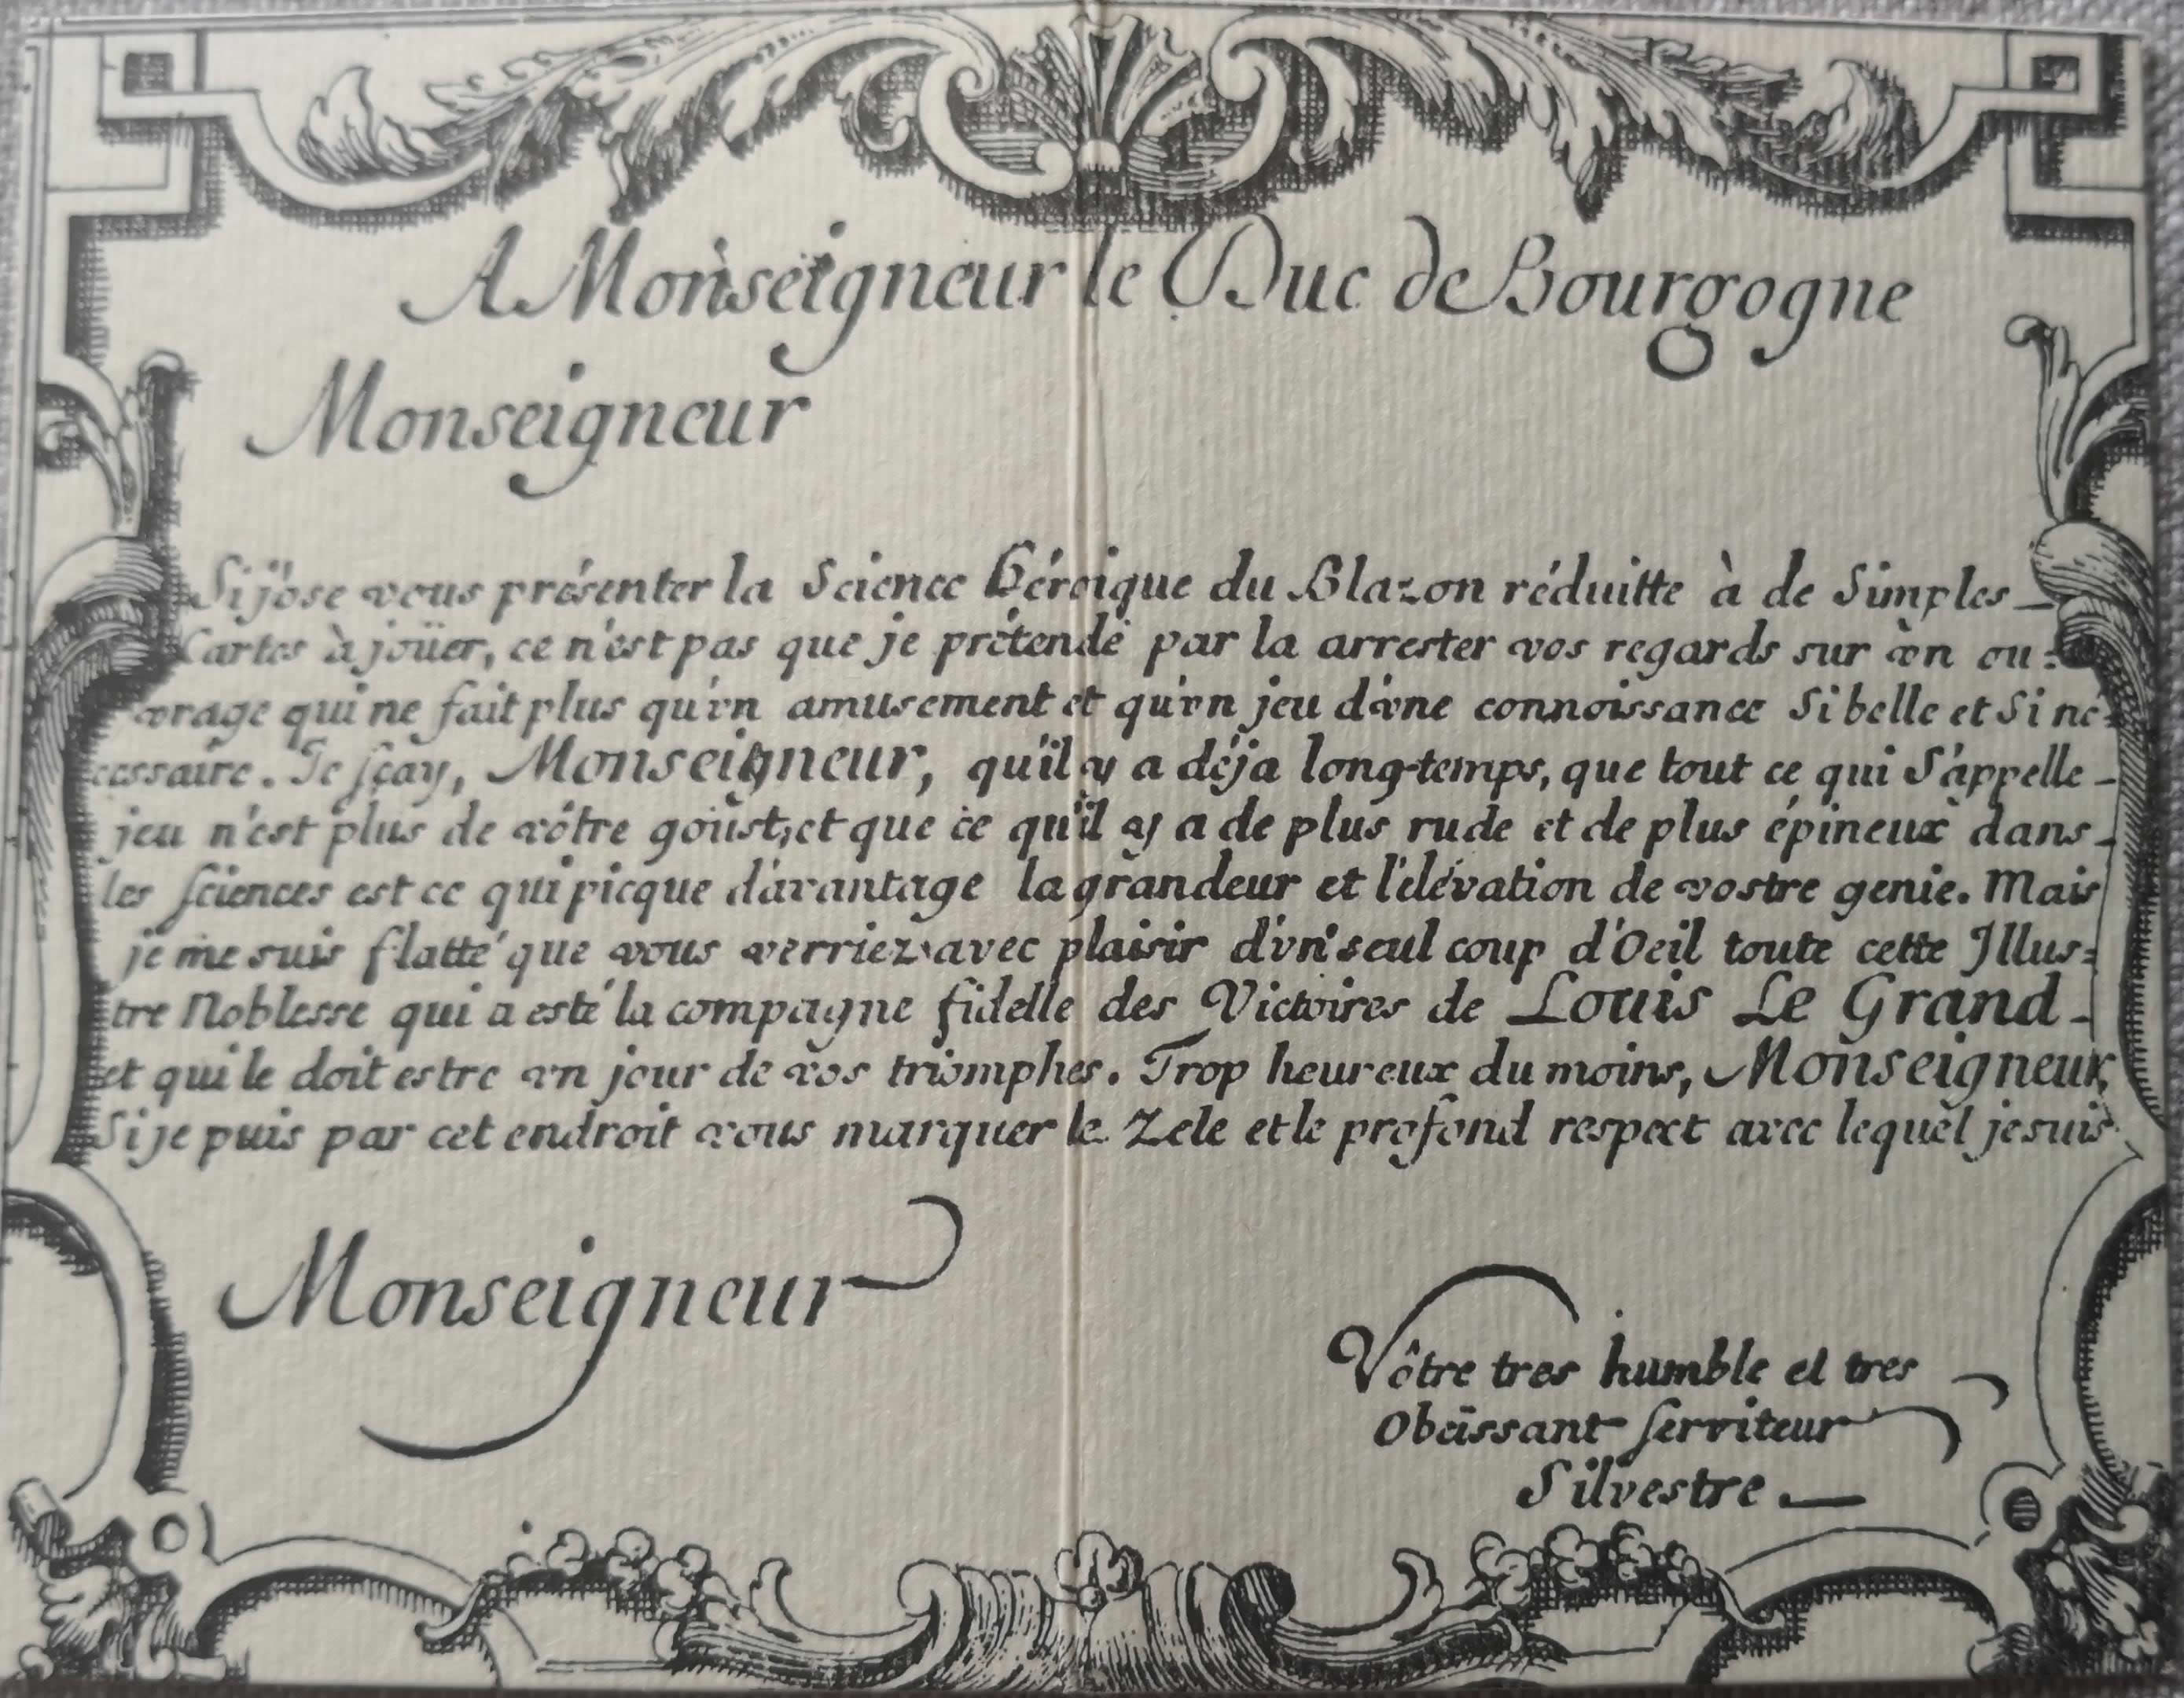 A Monseigneur le Duc de Bourgogne
Monseigneur
Si j'ose vous présenter la Science héroique du Blazon réduitte à de Simples
Cartes à joüer, ce n'est pas que je prétende par la arrester vos regards sur vn ou=
vrage qui ne fait plus qu'vn amusement et qu'vn jeu d'vne connoissance Si belle et Si né=
cessaire. Je sçay, Monseigneur, qu'il y a déja long-temps, que tout ce qui S'appelle
jeu n'est plus de vôtre goust, et que ce qu'il y a de plus rude et de plus épineux dans
les sciences est ce qui picque d'avantage la grandeur et l'élévation de vostre genie. Mais
je me suis flatté que vous verriez avec plaisir d'vn seul coup d'Oeil toute cette Illus=
tre Noblesse qui a esté la compagne fidelle des Victoires de Louis Le Grand
et qui le doit estre vn jour de vos triomphes. Trop heureux du moins, Monseigneur,
Si je puis par cet endroit vous marquer le Zele et le profond respect avec lequel je suis
Monseigneur
Vôtre tres humble et tres
Obeïssant serviteur
Silvestre